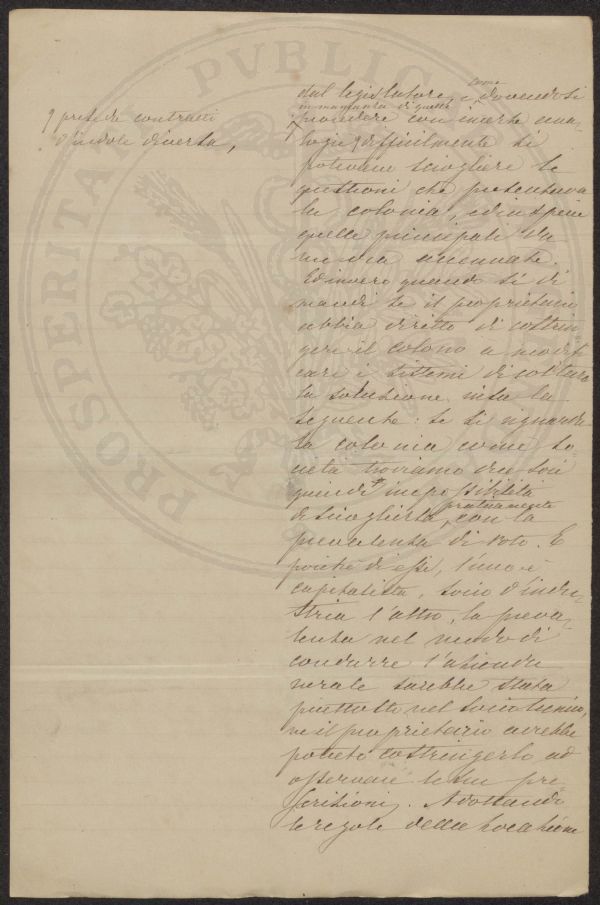 PROSPERITATI PVBLICAE
prese da contratti
d'indole diversa,
come
dal legislatore e dovendosi
in mancanza di queste
procedere con incerte ana-
logie, difficilmente si
potevano sciogliere le
questioni che presentava
la colonia, ed in specie
quelle principali da
me ora accennate.
Ed invero quando si di
mandi se il proprietario
abbia diritto di costrin
gere il colono a modifi
care i sistemi di coltura
la soluzione era la
seguente: se si riguarda
la colonia come so-
cietà troviamo due soci
quindi impossibilità
praticamente
di scioglierla, con la
prevalenza di voto. E
poichè di essi, l'uno è
capitalista, socio d'indu-
stria l'altro, la preva-
lenza nel modo di
condurre l'azienda
rurale sarebbe stata
piuttosto nel socio
ne il proprietario avrebbe
potuto costringerlo ad
osservare le sue pre
scrizioni. Adottando
le regole della locazione